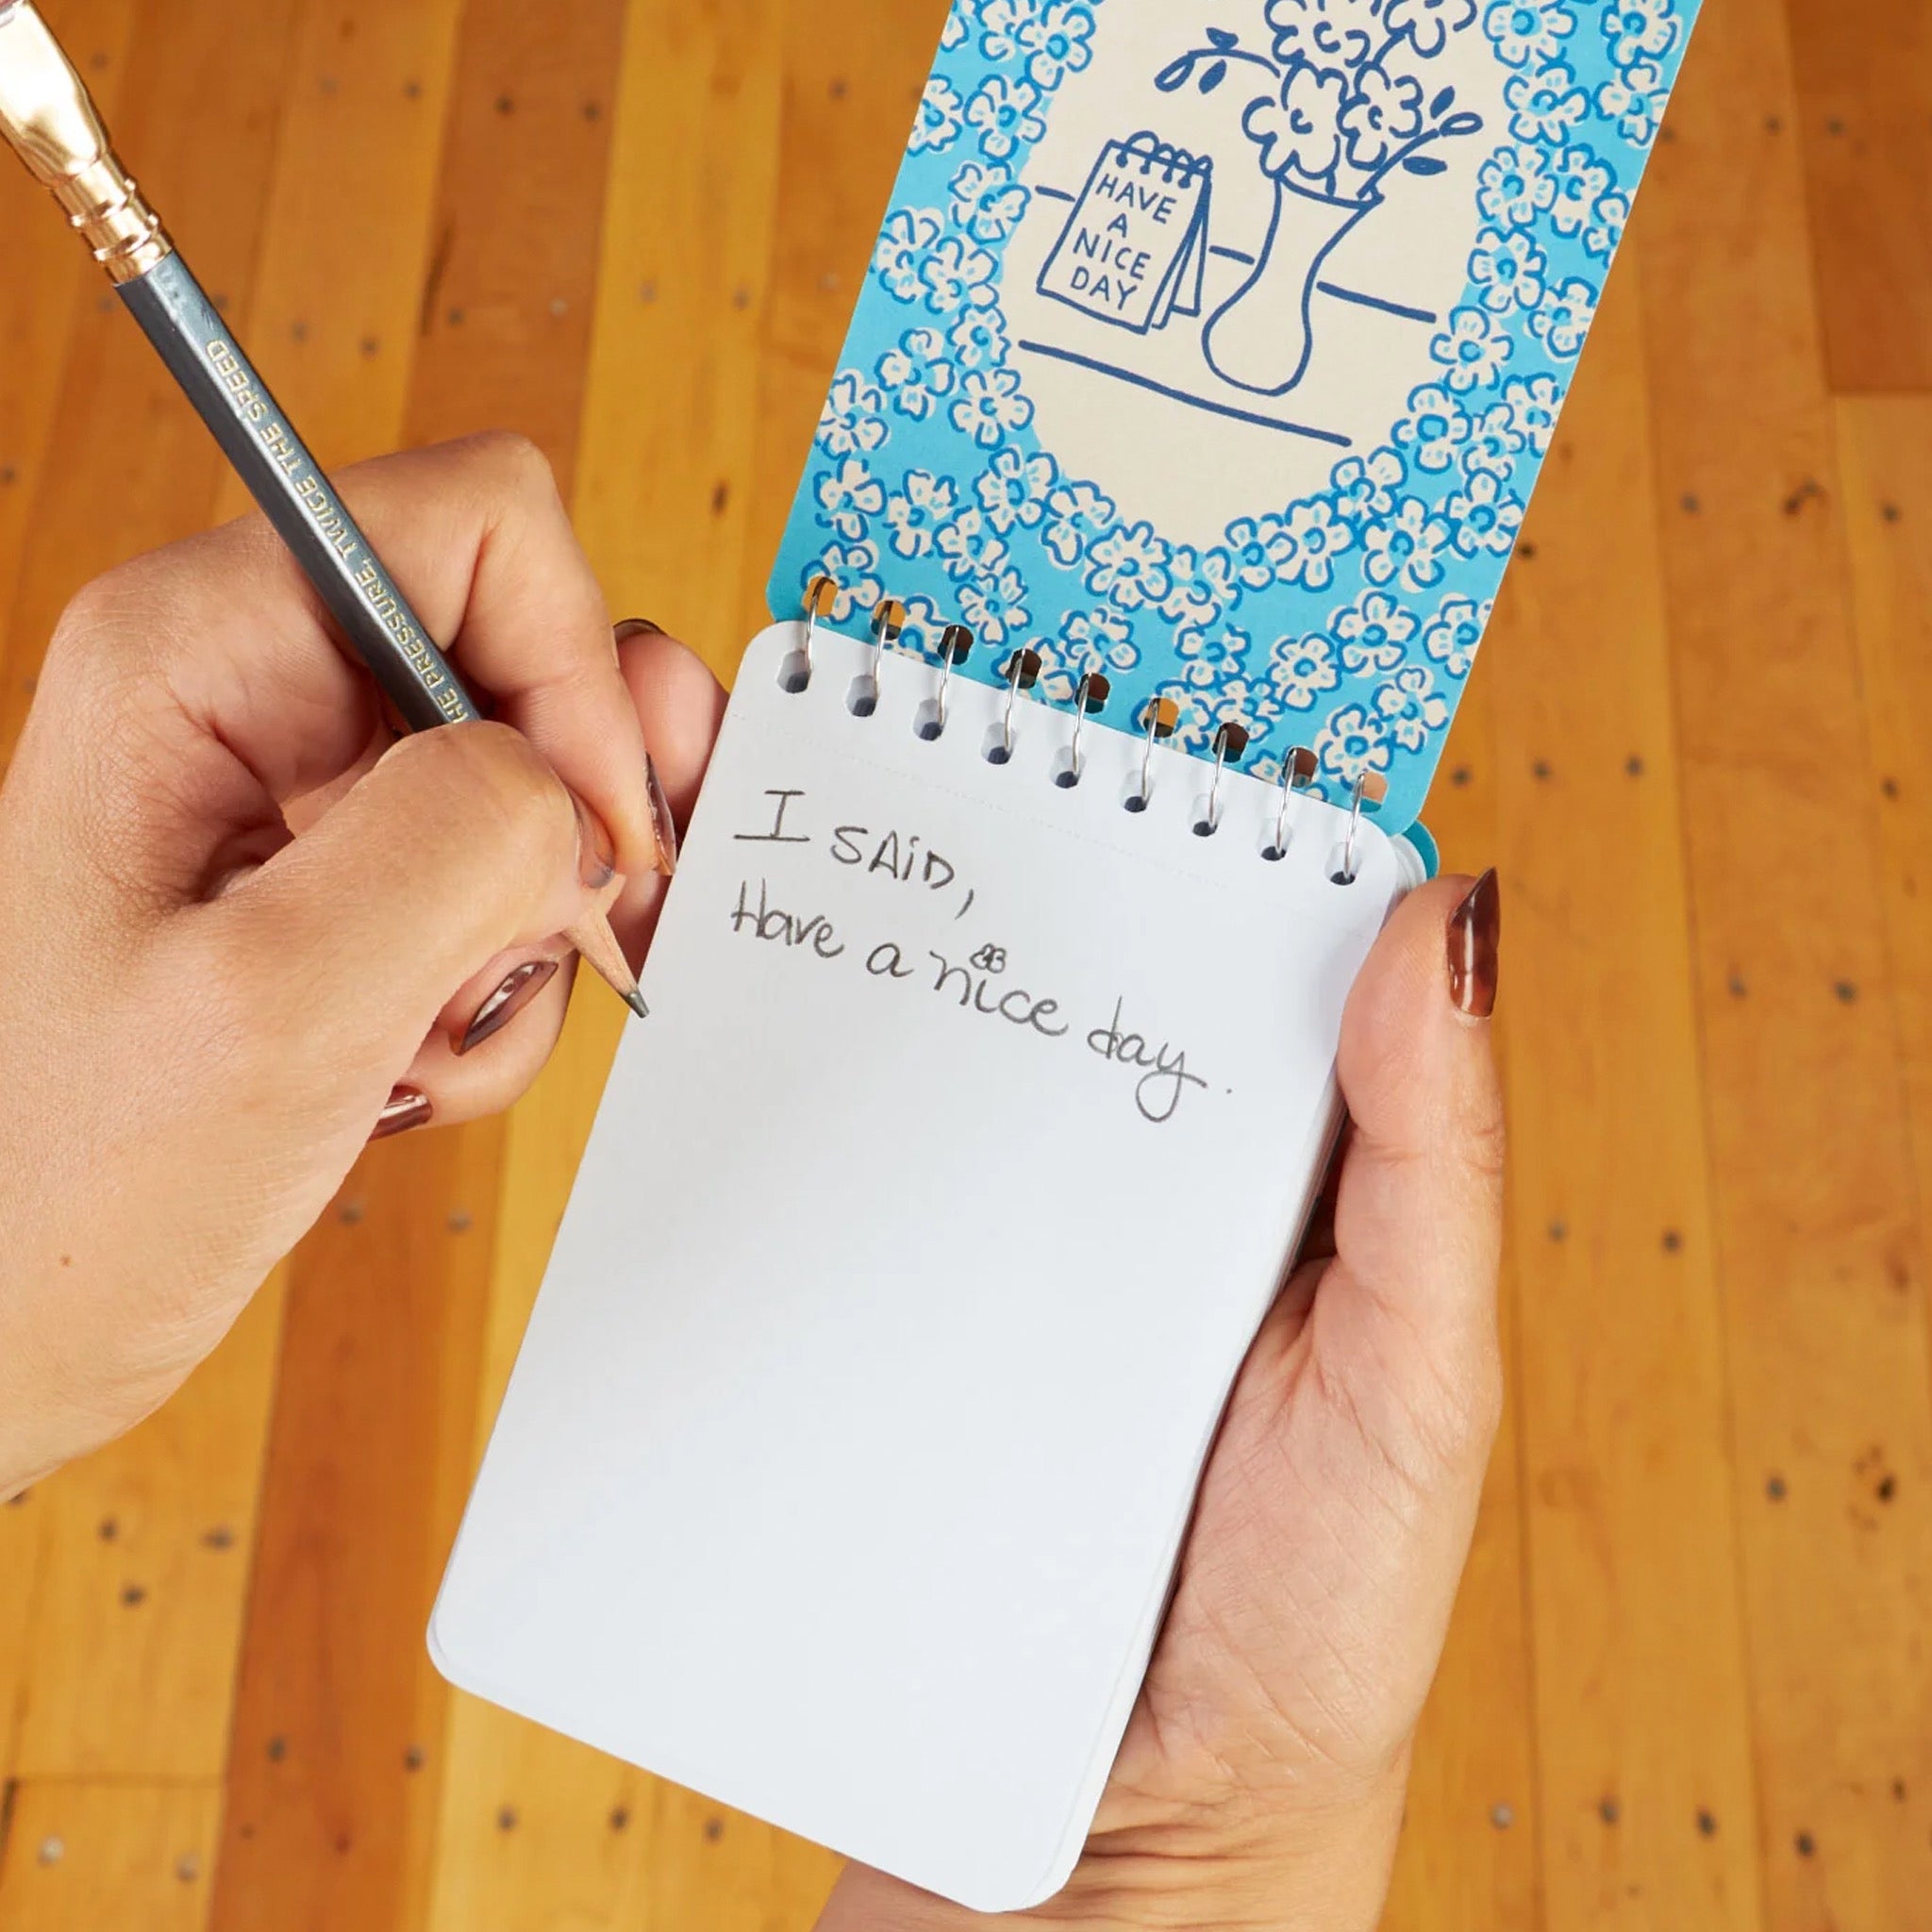 HAVE
A
NICE
DAY
HE PRESSURE, TWICE THE SPEED
I SAiD,
Have a nice day.